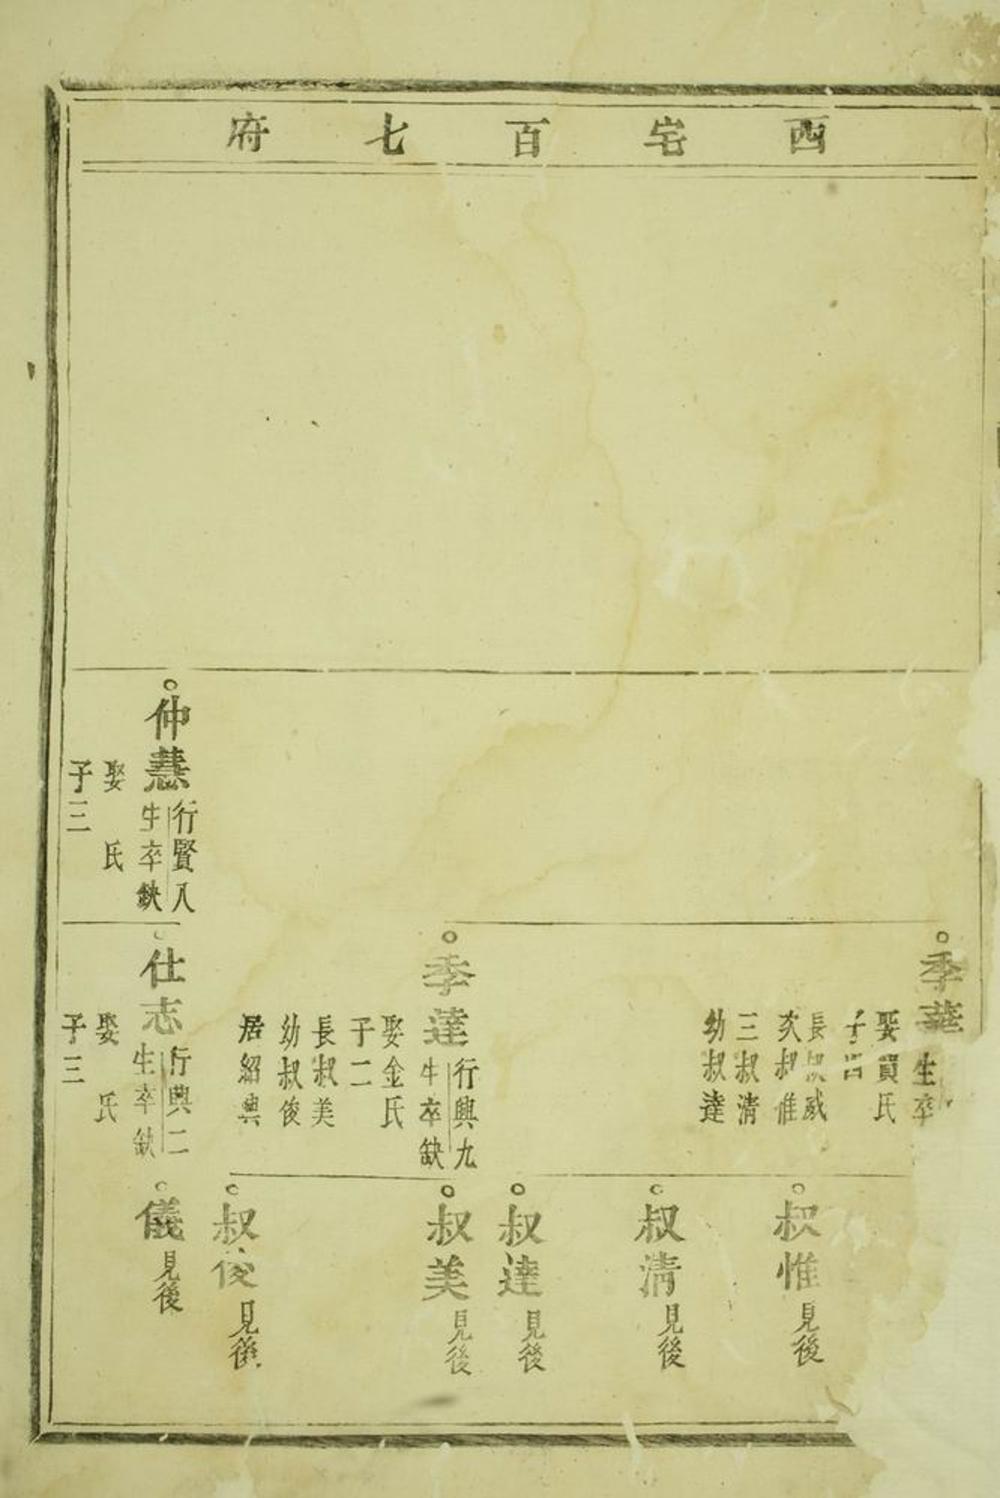 西宅百七府
仲慧
行賢八
生卒缺
娶　氏
子三
季華
生卒
娶買氏
子四
長叔威
次叔惟
三叔清
幼叔達
季達
行興九
生卒缺
娶金氏
子二
長叔美
幼叔俊
居紹興
仕志
行興二
生卒缺
娶　氏
子三
叔惟
見後
叔清
見後
叔達
見後
叔美
見後
叔俊
見後
儀
見後